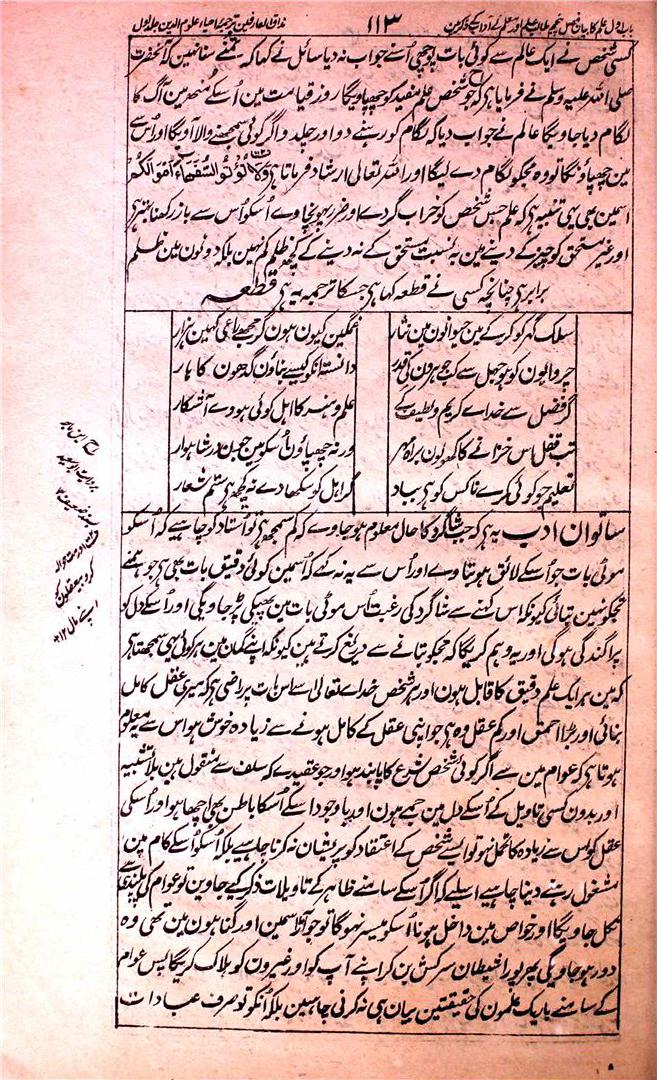 باب اول علم کا بیان فصل پنجم طالب علم اور معلم کے آداب کے ذکر مین
۱۱۳
مذاق العارفین ترجمہ احیاء علوم الدین جلد اول
کسی شخص نے ایک عالم سے کوئی بات پوچھی اُسنے جواب نہ دیا سائل نے کہا کہ تمنے سنا نہین کہ آنحضرت
صلی اللہ علیہ وسلم نے فرمایا ہی کہ جو شخص علم مفید کو چھپاویگا روز قیامت مین اُسکے مُنھ مین آگ کا
لگام دیا جاویگا عالم نے جواب دیا کہ لگام کو رہنے دو اور چلدو اگر کوئی سمجھنے والا آویگا اور اُس سے
مین چھپاؤنگا تو وہ مجکو لگام دے لیگا اور اللہ تعالی ارشاد فرماتا ہی وَلَا تُؤْتُوا السُّفَهَاءَ أَمْوَالَكُمُ
اسمین بھی یہی تنبیہ ہی کہ علم جس شخص کو خراب کردے اور ضرر پہونچاوے اُسکو اُس سے باز رکھنا بہتر ہی
اور غیر مستحق کو چیز کے دینے مین بہ نسبت مستحق کے نہ دینے کے کچھ ظلم کم نہین بلکہ دونون مین ظلم
برابر ہی چنانچہ کسی نے قطعہ کہا ہی جسکا ترجمہ یہ ہی قطعہ
سلک گہر کو کرکے مین حیوانون مین نثار
غمگین کیون ہون گرچہ مجھے غم کہین ہزار
چرواہون کو جو جہل سے کب جوہرون کی قدر
دانستہ انکو کیسے بناؤن گدھون کا ہار
گر فضل سے خداے کریم و لطیف کے
علم و ہنر کا اہل کوئی ہووے آشکار
تب قفل اس خزانے کا کھولون براہ مہر
ورنہ چھپاؤن اُسکو مین جون در شاہوار
تعلیم جو کوئی کرے ناکس کو ہی بباد
گر اہل کو سکھادے نہ کچھ ہی ستم شعار
ساتوان ادب یہ ہی کہ جب شاگرد کا حال معلوم ہو جاوے کہ کم سمجھ ہی تو اُستاد کو چاہیے کہ اُسکو
موٹی بات جو اُسکے لائق ہو بتاوے اور اُس سے یہ نہ کہے کہ اُسمین کوئی دقیق بات بھی ہی جو ہمنے
تجکو نہین بتائی کیونکہ اس کہنے سے شاگرد کی رغبت اُس موٹی بات مین پھیکی پڑجاویگی اور اُسکے دل کو
پراگندگی ہوگی اور یہ وہم کریگا کہ مجکو بتانے سے دریغ کرتے ہین کیونکہ اپنے گمان مین ہر کوئی یہی سمجھتا ہی
کہ مین ہر ایک علم دقیق کا قابل ہون اور ہر شخص خداے تعالی سے اس بات پر راضی ہی کہ میری عقل کامل
بنائی اور بڑا احمق اور کم عقل وہ ہی جو اپنی عقل کے کامل ہونے سے زیادہ خوش ہو اس سے یہ معلوم
ہوتا ہی کہ عوام مین سے اگر کوئی شخص شرع کا پابند ہو اور جو عقیدے کہ سلف سے منقول ہین بلا تشبیہ
اور بدون کسی تاویل کے اُسکے دل مین جمے ہون اور باوجود اسکے اُسکا باطن بھی اچھا ہو اور اُسکی
عقل کو اس سے زیادہ کا تحمل نہو تو ایسے شخص کے اعتقاد کو پریشان نہ کرنا چاہیے بلکہ اُسکو اُسکے کام مین
مشغول رہنے دینا چاہیے اسلیے کہ اگر اُسکے سامنے ظاہر کے تاویلات ذکر کیے جاوین تو عوام کی پابندی سے
نکل جاویگا اور خواص مین داخل ہونا اُسکو میسر نہوگا تو جو آڑ اُسمین اور گناہون مین تھی وہ
دور ہو جاویگی پھر پورا شیطان سرکش بن کر اپنے آپ کو اور غیرون کو ہلاک کریگا پس عوام
کے سامنے باریک علمون کی حقیقتین بیان ہی نہ کرنی چاہیین بلکہ انکو تو صرف عبادات
ابن ماجہ
اور مت حوالہ
کرو بیعقلون کو
اپنے مال ۱۲